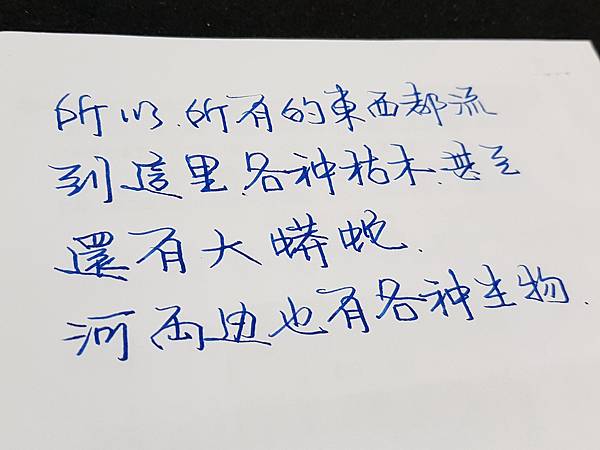 所以.所有的東西都流
到這里.各种枯木.甚至
還有大蟒蛇.
河両边也有各种生物.